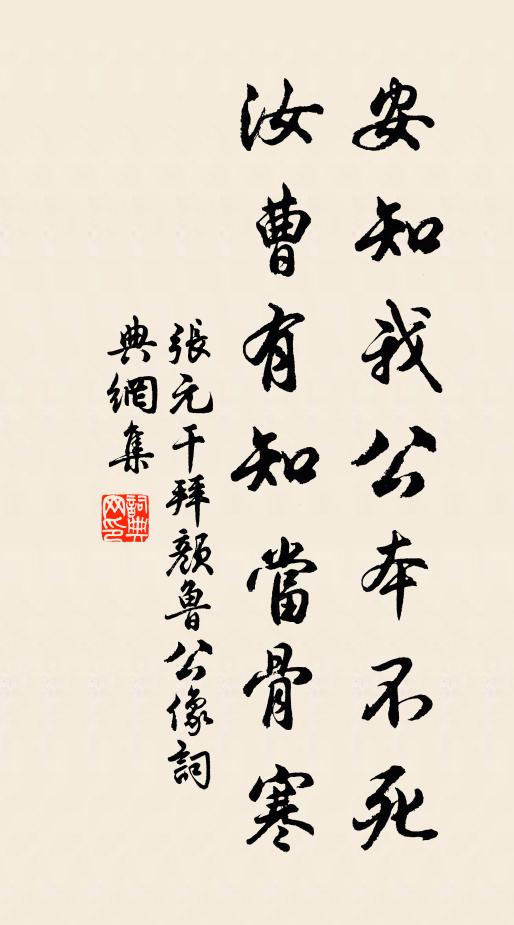 安知我公本不死
汝曹有知當骨寒
張元干拜顏魯公像詞
典網集
詞典網印